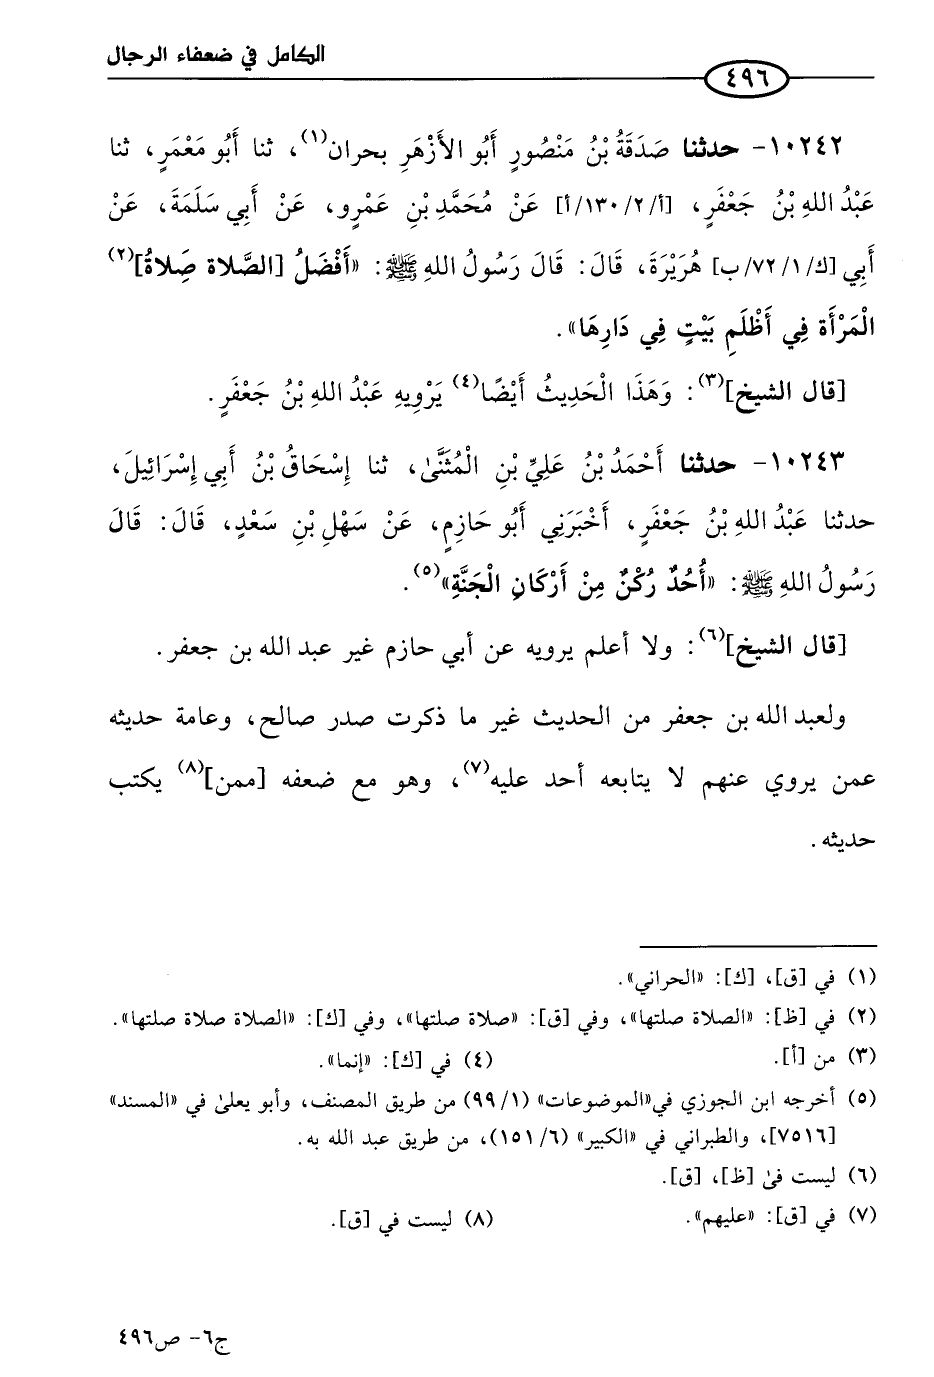 الكامل في ضعفاء الرجال
٤٩٦
١٠٢٤٢- حدثنا صَدَقَةُ بْنُ مَنْصُورٍ أَبُو الأَزْهَرِ بحران(١)، ثنا أَبُو مَعْمَرٍ، ثنا
عَبْدُ اللهِ بْنُ جَعْفَرٍ، [أ/٢/١٣٠/أ] عَنْ مُحَمَّدِ بْنِ عَمْرٍو، عَنْ أَبِي سَلَمَةَ، عَنْ
أَبِي [ك/١/٧٢/ب] هُرَيْرَةَ، قَالَ: قَالَ رَسُولُ اللهِ ﷺ: «أَفْضَلُ [الصَّلاة صَِلاةُ](٢)
الْمَرْأَة فِي أَظْلَمِ بَيْتٍ فِي دَارِهَا».
[قال الشيخ](٣): وَهَذَا الْحَدِيثُ أَيْضًا(٤) يَرْوِيهِ عَبْدُ اللهِ بْنُ جَعْفَرٍ.
١٠٢٤٣- حدثنا أَحْمَدُ بْنُ عَلِيِّ بْنِ الْمُثَنَّىٰ، ثنا إِسْحَاقُ بْنُ أَبِي إِسْرَائِيلَ،
حدثنا عَبْدُ اللهِ بْنُ جَعْفَرٍ، أَخْبَرَنِي أَبُو حَازِمٍ، عَنْ سَهْلِ بْنِ سَعْدٍ، قَالَ: قَالَ
رَسُولُ اللهِ ﷺ: «أُحُدٌ رُكْنٌ مِنْ أَرْكَانِ الْجَنَّةِ»(٥).
[قال الشيخ](٦): ولا أعلم يرويه عن أبي حازم غير عبد الله بن جعفر.
ولعبد الله بن جعفر من الحديث غير ما ذكرت صدر صالح، وعامة حديثه
عمن يروي عنهم لا يتابعه أحد عليه(٧)، وهو مع ضعفه [ممن](٨) يكتب
حديثه.
(١) في [ق]، [ك]: «الحراني».
(٢) في [ظ]: «الصلاة صلتها»، وفي [ق]: «صلاة صلتها»، وفي [ك]: «الصلاة صلاة صلتها».
(٣) من [أ]. (٤) في [ك]: «إنما».
(٥) أخرجه ابن الجوزي في«الموضوعات» (١/ ٩٩) من طريق المصنف، وأبو يعلىٰ في «المسند»
[٧٥١٦]، والطبراني في «الكبير» (٦/ ١٥١)، من طريق عبد الله به.
(٦) ليست فىٰ [ظ]، [ق].
(٧) في [ق]: «عليهم». (٨) ليست في [ق].
ج٦- ص٤٩٦